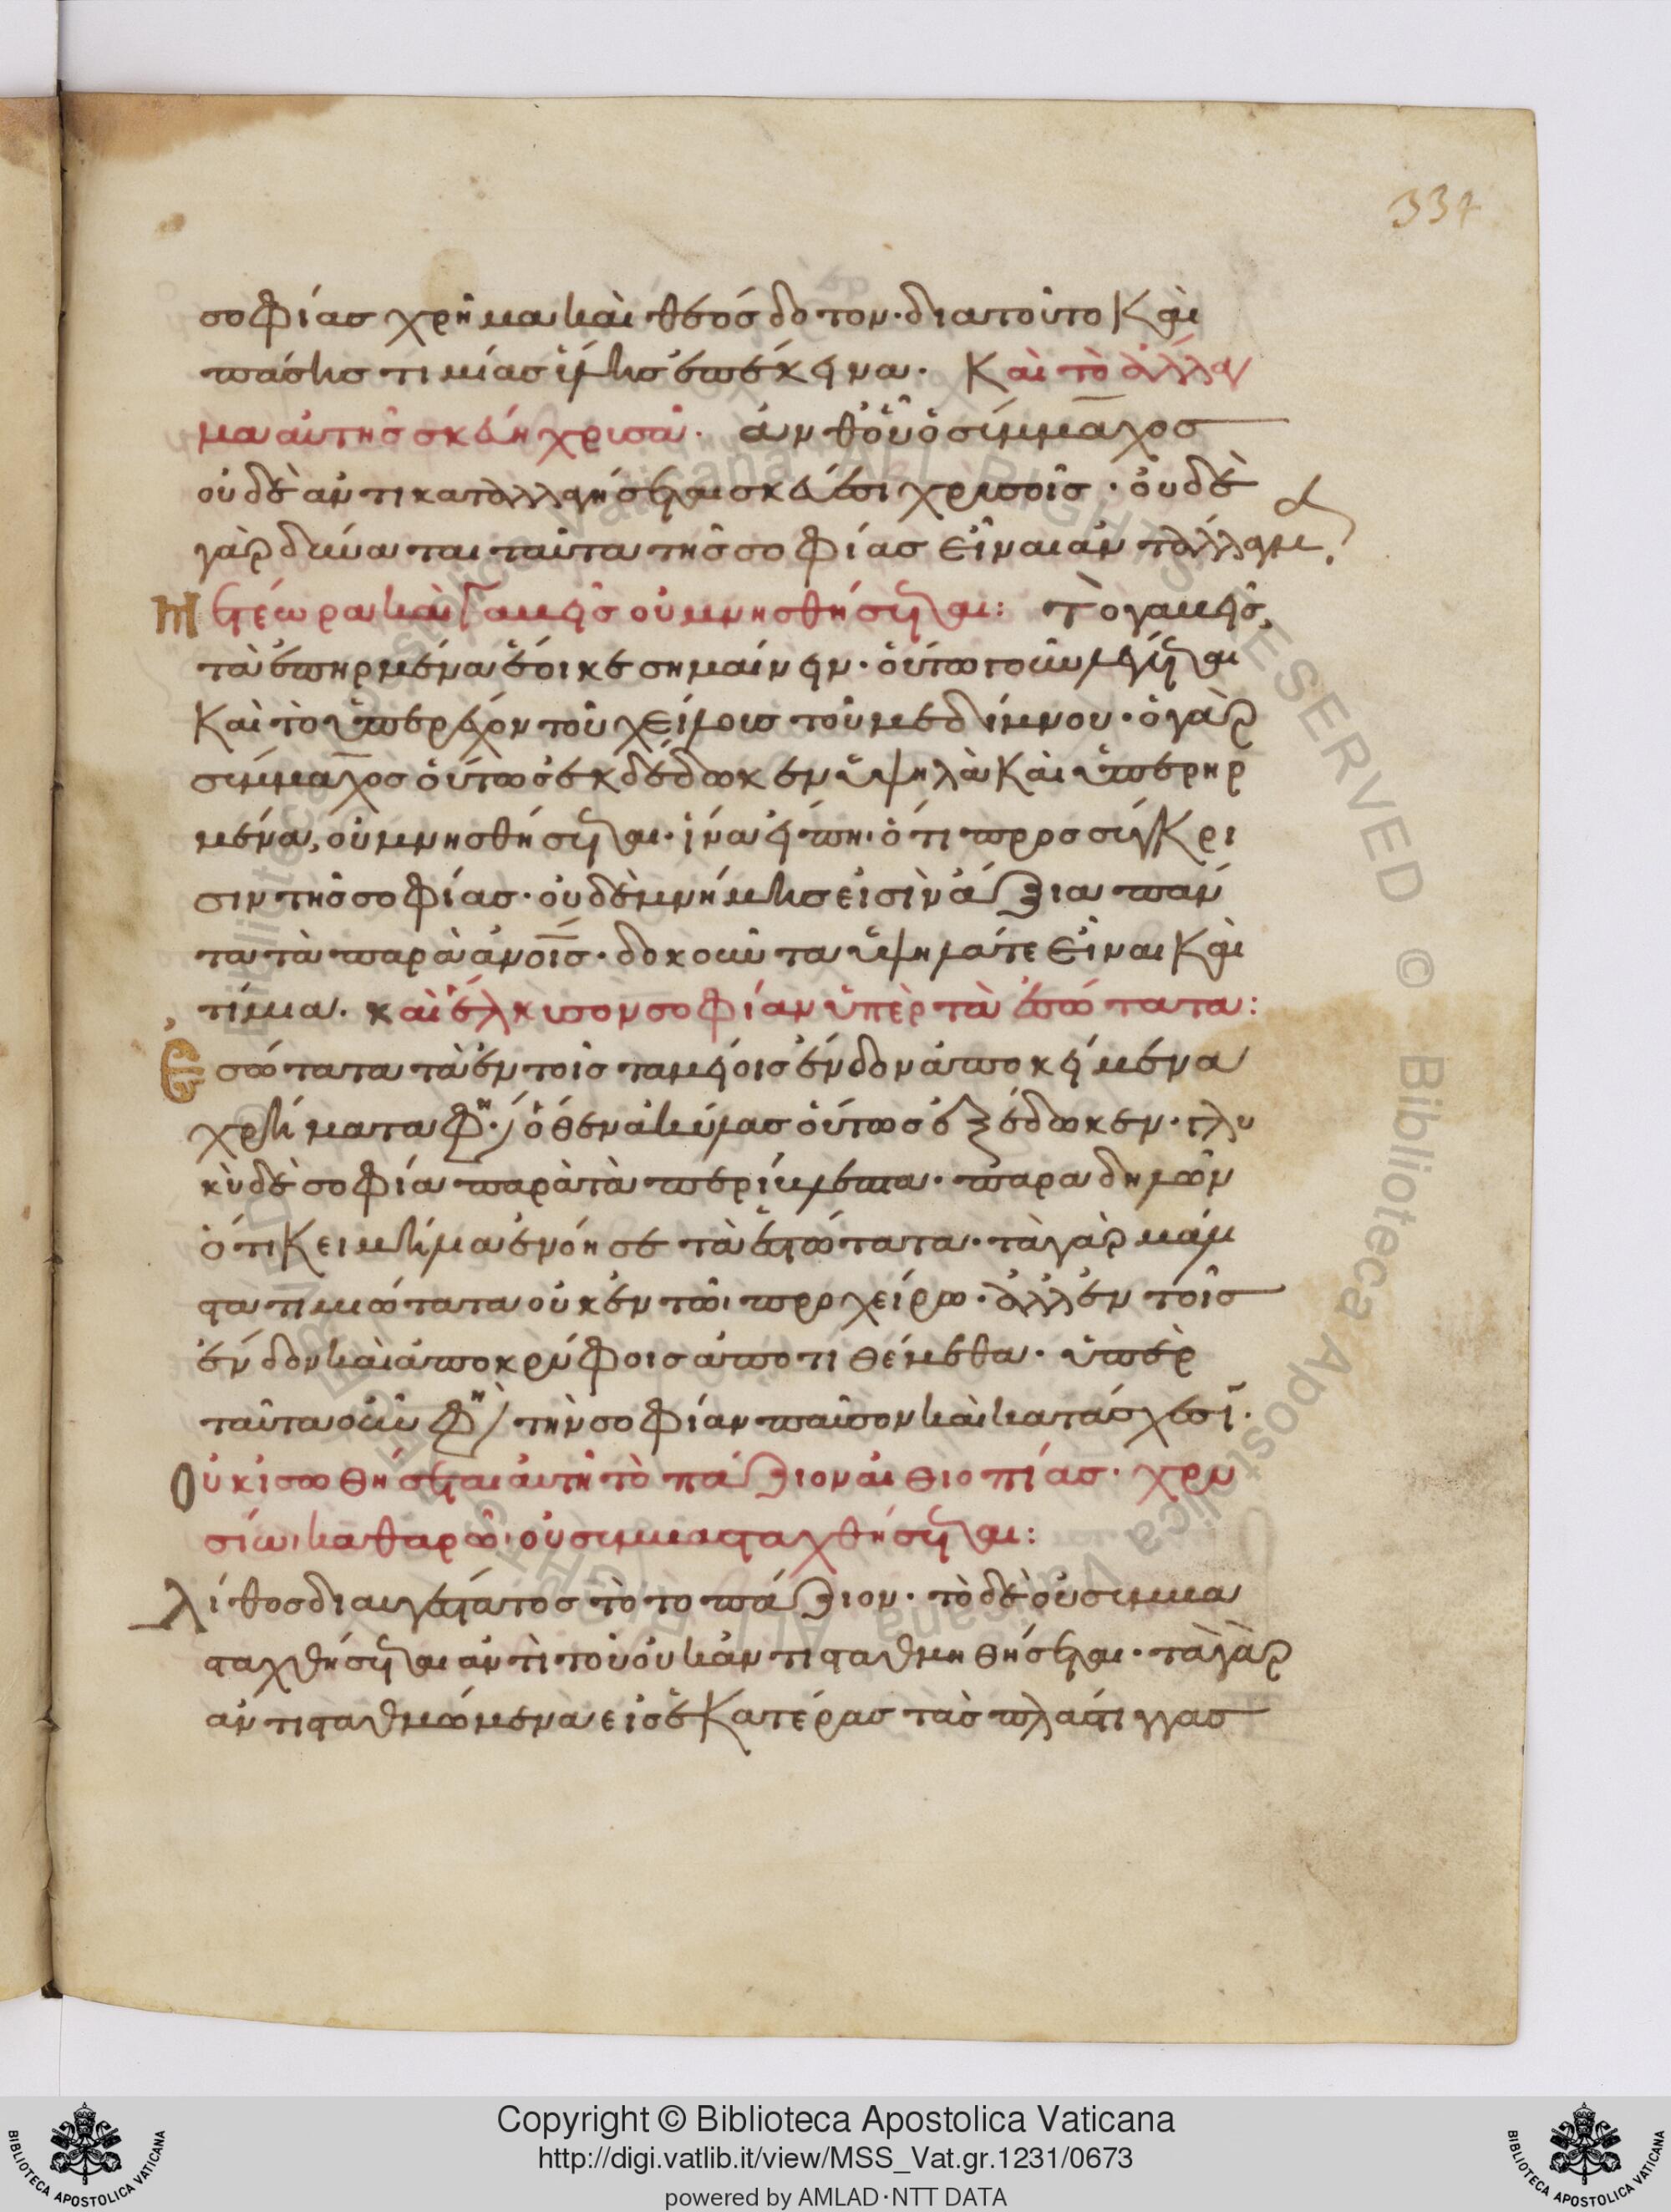 337
σοφίας χρῆμα καὶ θεόσδοτον· διατοῦτο καὶ
πάσης τιμίας ὕλης ἐπέκεινα. Καὶ τὸ ἄλλαγ
μα αὐτῆς σκεύη χρυσᾶ. ἀνθ' οὗ ὁ σύμμαχος
οὐδὲ ἀντικαταλλαγήσεται σκεύεσι χρυσοῖς· οὐδὲ
γὰρ δύναται ταῦτα τῆς σοφίας εἶναι ἀντάλλαγμα.
Μετέωρα καὶ γαμεὶς οὐ μνησθήσεται: Τὸ γαμεὶς,
τὰ ἐπηρμένα ἔοικε σημαίνειν· οὕτω γοῦν λέγεται
Καὶ τὸ ὑπερέχον τοῦ χείλους τοῦ μεδίμνου· ὁ γὰρ
σύμμαχος οὕτως ἐκδέδωκεν ὑψηλὰ καὶ ὑπερηρ
μένα, οὐ μνησθήσεται· ἵνα εἴπῃ· ὅτι προς σύγκρι
σιν τῆς σοφίας· οὐδὲ μνήμης εἰσὶν ἄξια πάν
τα τὰ παρὰ ἀνοις· δοκοῦντα ὑψηλά τε εἶναι καὶ
τίμια. καὶ ἕλκυσον σοφίαν ὑπὲρ τὰ ἐσώτατα:
Ἐσώτατα τὰ ἐν τοῖς ταμείοις ἔνδον ἀποκείμενα
χρήματα φη· ὅθεν ἀκύλας οὕτως ἐξέδωκεν· γλυ
κὺ δὲ σοφία παρὰ τὰ περίβλεπτα· παραδηλῶν
ὅτι κειμήλια ἐνόησε τὰ ἐσώτατα· τὰ γὰρ μάλι
στα τιμιώτατα οὐκ ἐν τῶι προχείρω· ἀλλ' ἐν τοῖς
ἔνδον καὶ ἀποκρύφοις ἀποτιθέμεθα· ὑπὲρ
ταῦτα οὖν φη τὴν σοφίαν ποίησον καὶ κατάσχεσιν.
Οὐκ ἰσωθήσεται αὐτῇ τὸ πάζιον αἰθιοπίας· χρυ
σίωι καθαρῶ· οὐ συμβασταχθήσεται:
Λίθος διαυγέστατος τὸ τοπάζιον· τὸ δὲ οὐ συμβα
σταχθήσεται ἀντὶ τοῦ οὐκ ἀντισταθμηθήσεται· τὰ γὰρ
ἀντισταθμώμενα εἰς ἑκατέρας τὰς πλάστιγγας
Copyright © Biblioteca Apostolica Vaticana
http://digi.vatlib.it/view/MSS_Vat.gr.1231/0673
powered by AMLAD·NTT DATA